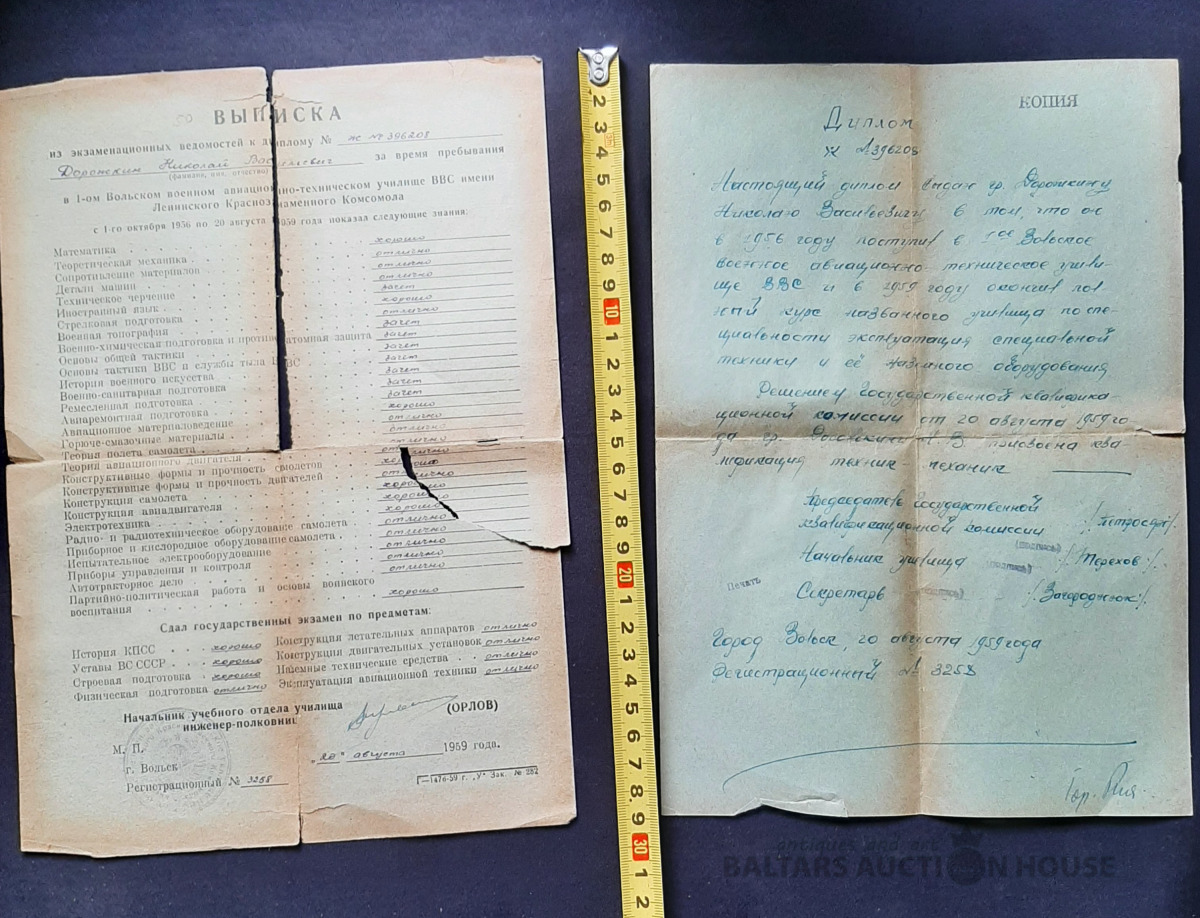 ВЫПИСКА
из экзаменационных ведомостей к диплому № Ж № 396208
Дорожкин Николай Васильевич за время пребывания
(фамилия, имя, отчество)
в 1-ом Вольском военном авиационно-техническом училище ВВС имени
Ленинского Краснознаменного Комсомола
с 1-го октября 1956 по 20 августа 1959 года показал следующие знания:
Математика хорошо
Теоретическая механика отлично
Сопротивление материалов отлично
Детали машин отлично
Техническое черчение зачет
Иностранный язык хорошо
Стрелковая подготовка отлично
Военная топография зачет
Военно-химическая подготовка и противоатомная защита зачет
Основы общей тактики зачет
Основы тактики ВВС и службы тыла ВВС зачет
История военного искусства зачет
Военно-санитарная подготовка зачет
Ремесленная подготовка хорошо
Авиаремонтная подготовка отлично
Авиационное материаловедение отлично
Горюче-смазочные материалы отлично
Теория полета самолета
Теория авиационного двигателя
Конструктивные формы и прочность смолетов
Конструктивные формы и прочность двигателей хорошо
Конструкция самолета хорошо
Конструкция авиадвигателя хорошо
Электротехника отлично
Радио- и радиотехническое оборудование самолета отлично
Приборное и кислородное оборудование самолета отлично
Испытательное электрооборудование отлично
Приборы управления и контроля отлично
Автотракторное дело
Партийно-политическая работа и основы воинского
воспитания хорошо
Сдал государственный экзамен по предметам:
История КПСС хорошо
Уставы ВС СССР хорошо
Строевая подготовка хорошо
Физическая подготовка отлично
Конструкция летательных аппаратов отлично
Конструкция двигательных установок отлично
Наземные технические средства отлично
Эксплуатация авиационной техники отлично
Начальник учебного отдела училища
инженер-полковник (ОРЛОВ)
М. П. „20" августа 1959 года.
г. Вольск
Регистрационный № 3258
Г—1476-59 г. „У" Зак. № 282
2 3 4 5 6 7 8 9 10 1 2 3 4 5 6 7 8 9 20 1 2 3 4 5 6 7 8 9 30 1 2
КОПИЯ
Диплом
Ж №396208
Настоящий диплом выдан гр. Дорожкину
Николаю Васильевичу в том, что он
в 1956 году поступил в 1ое Вольское
военное авиационно-техническое учили-
ще ВВС и в 1959 году окончил пол-
ный курс названного училища по спе-
циальности эксплуатация специальной
техники и её наземного оборудования
Решением Государственной квалифика
ционной комиссии от 20 августа 1959 го-
да гр. Дорожкину Н. В. присвоена ква-
лификация техник-механик
Председатель Государственной
квалификационной комиссии (подпись) /Петросян/
Начальник училища (подпись) /Терехов/
Печать
Секретарь (подпись) /Загороднюк/
Город Вольск, 20 августа 1959 года
Регистрационный № 3258
antiques and art
BALTARS AUCTION HOUSE